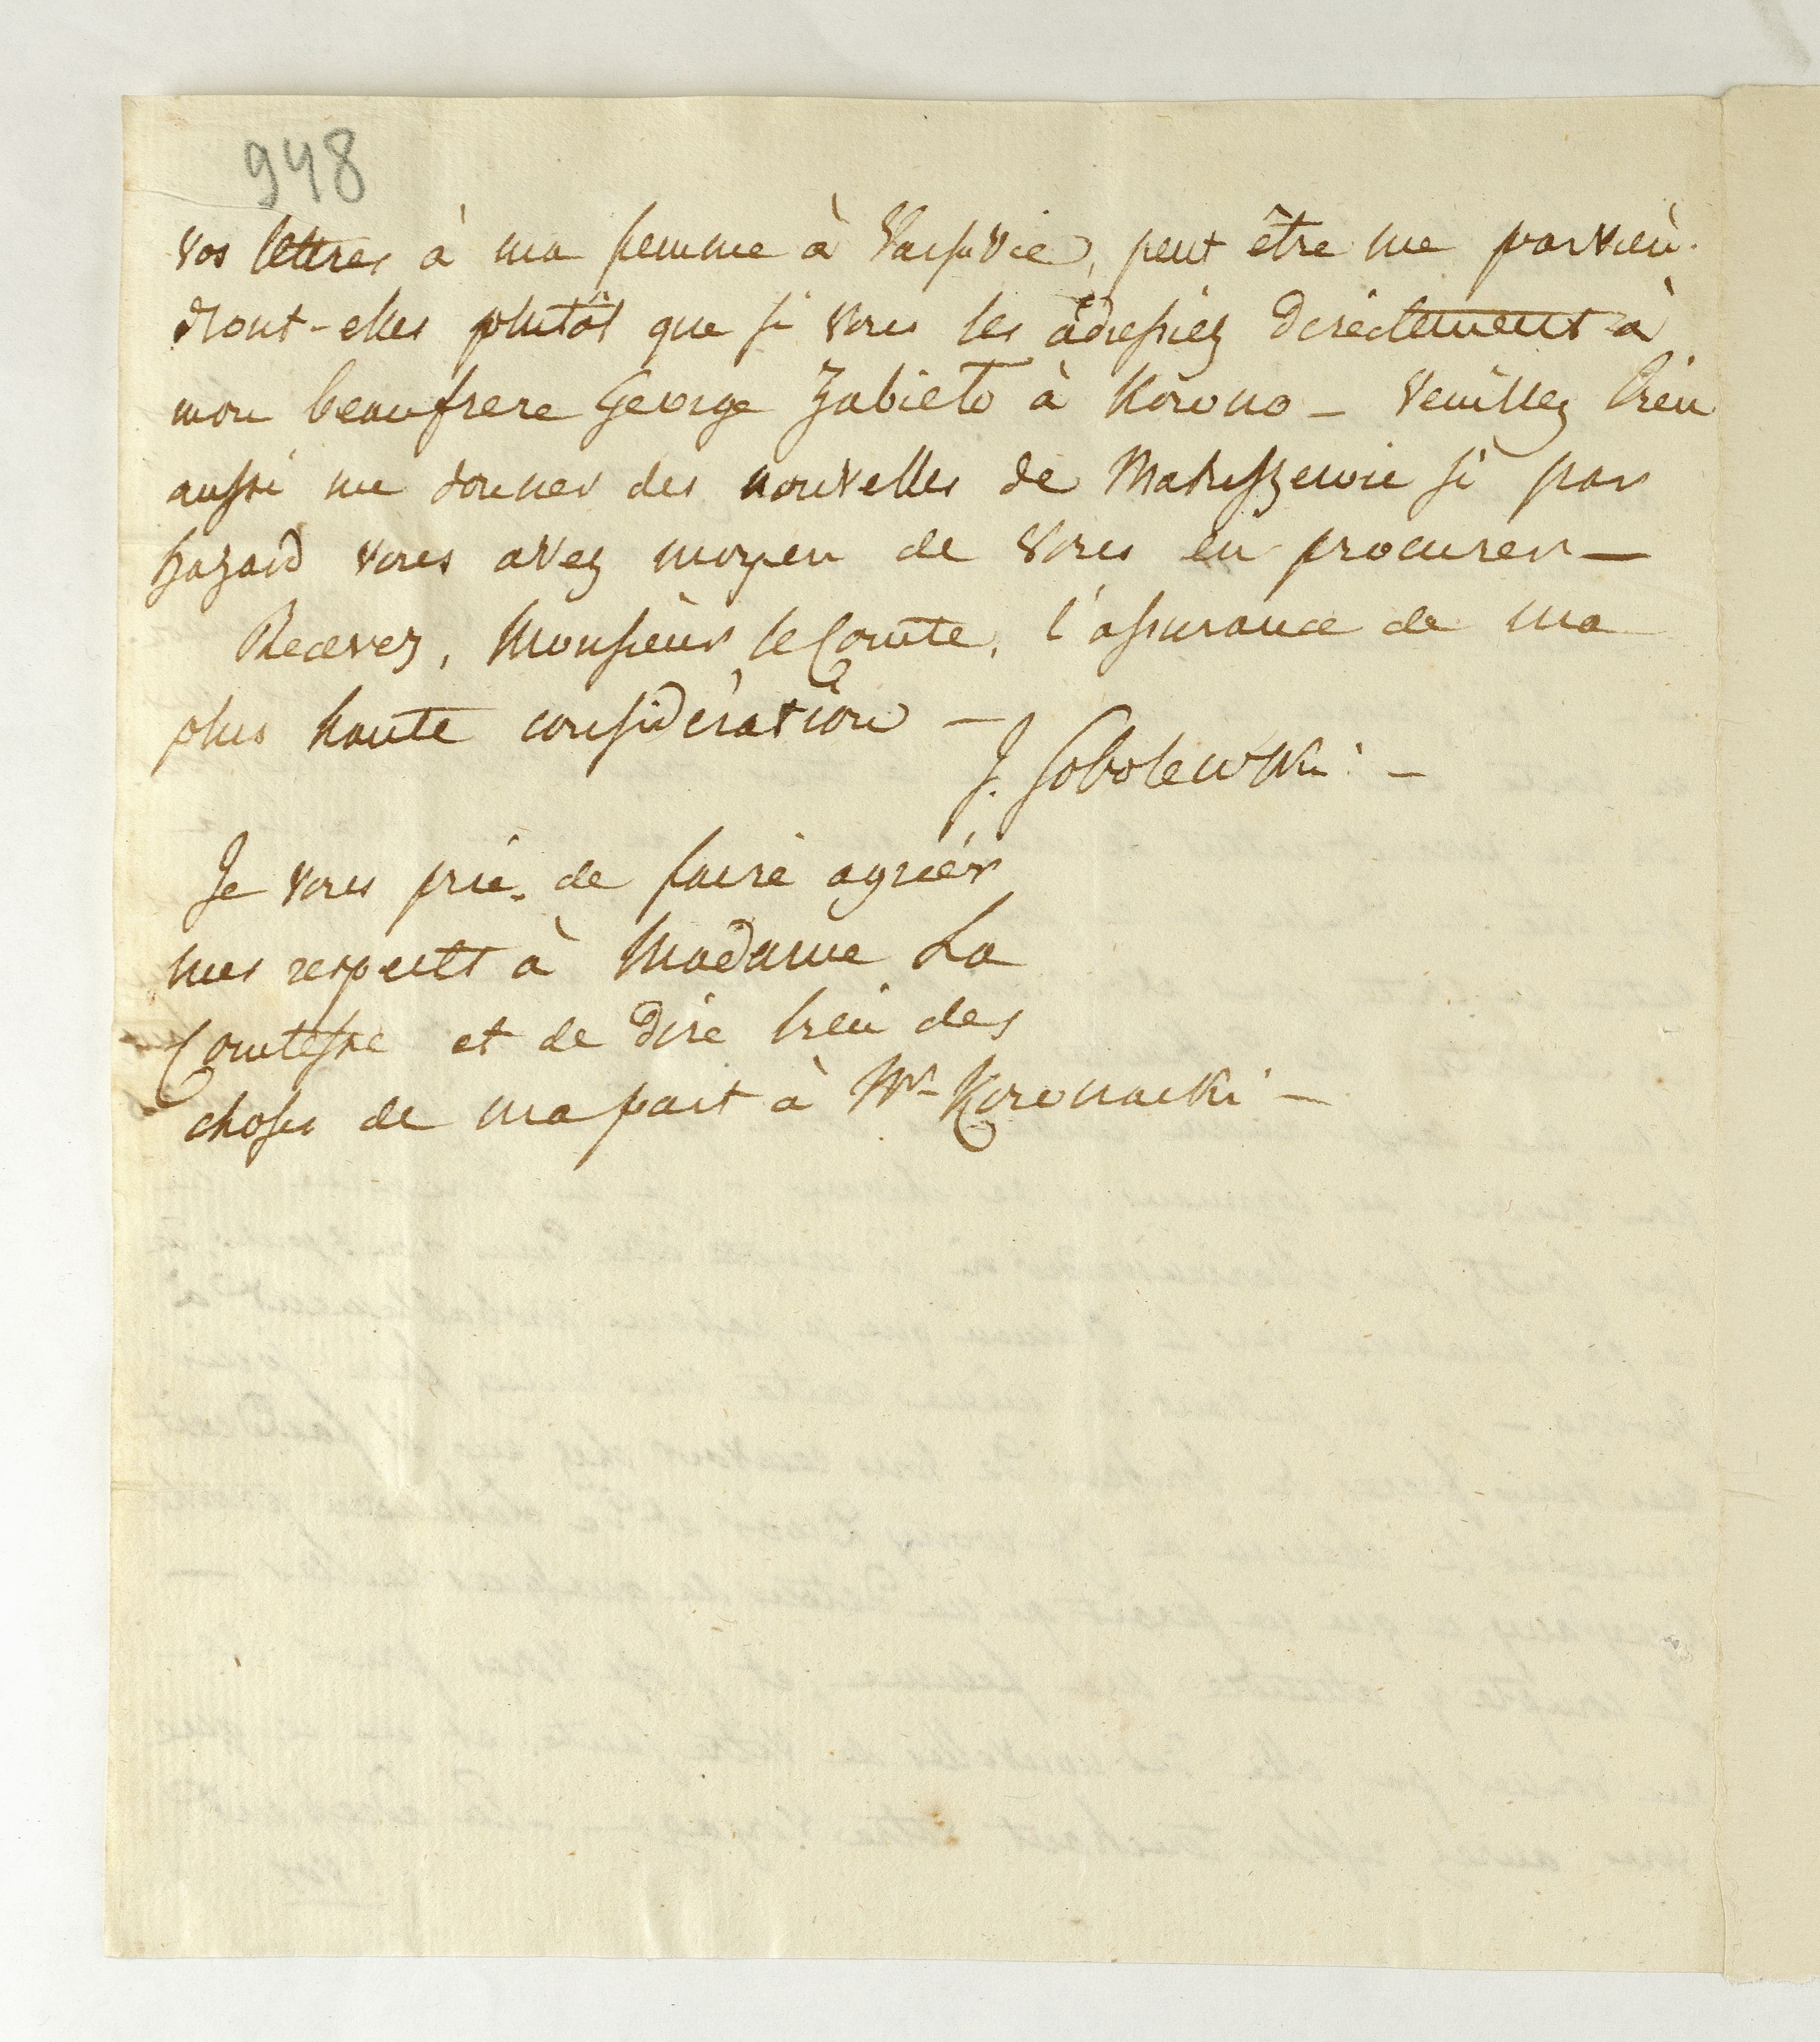 948
vos lettres à ma femme à Varsovie, peut être me parvien-
dront-elles plutôt que si vous les adressiez directement à
mon beaufrere George Zabieło à Kowno – Veuillez bien
aussi me donner des nouvelles de Matuszewic si par
hazard vous avez moyen de vous en procurer –
Recevez, Monsieur le Comte, l'assurance de ma
plus haute considération –
J. Sobolewski –
Je vous prie de faire agréér
mes respects à Madame La
Comtesse et de dire bien des
choses de ma part à Mr Kownacki –